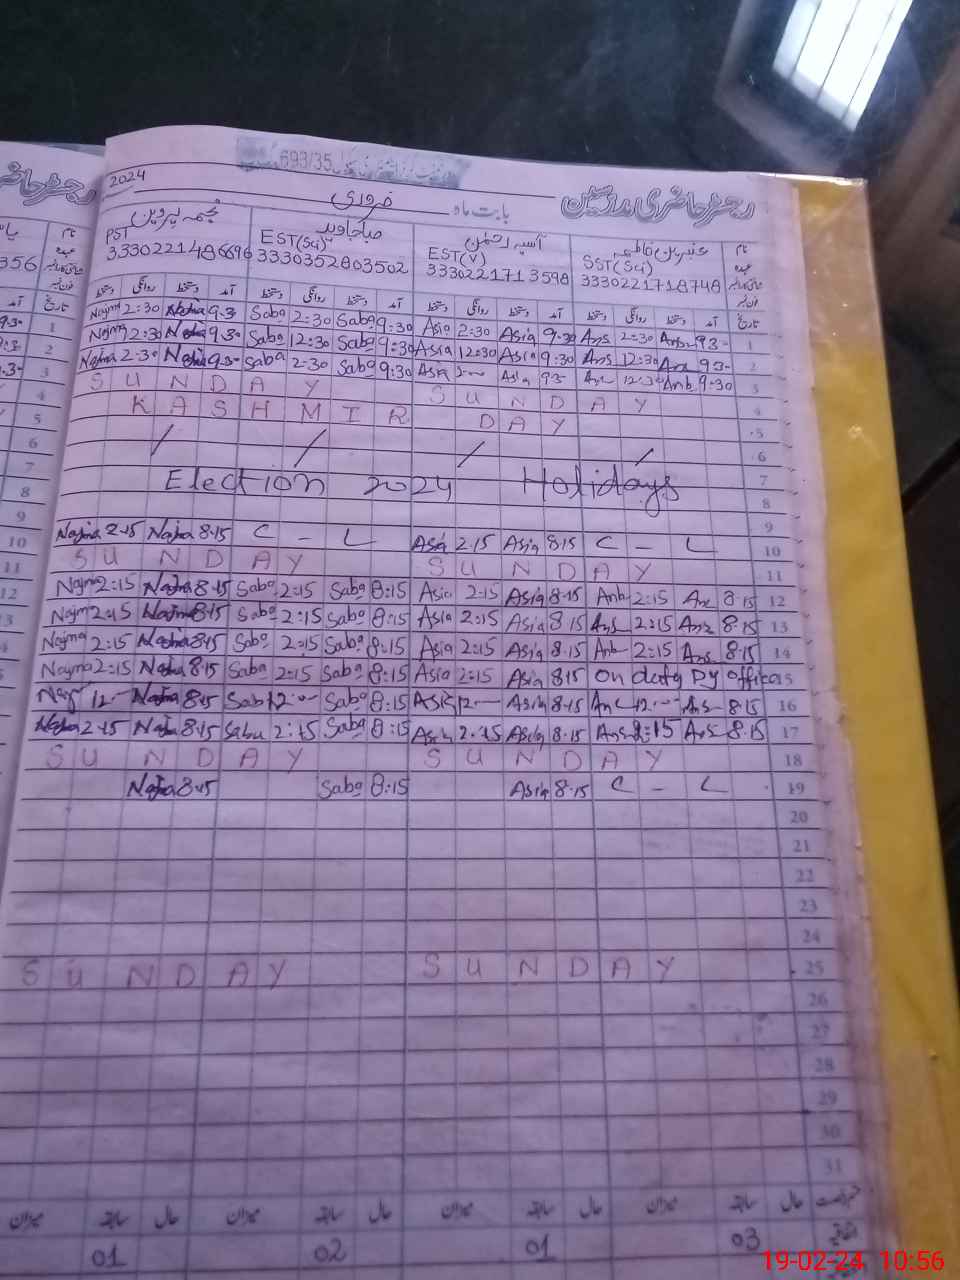 693/35
2024 فروری بابت ماہ رجسٹر حاضری مدرسین
نجمہ پروین صباجاوید آسیہ رحمٰن عنبرین فاطمہ نام
PST EST(Sci) EST(V) SST(Sci) عہدہ
356 3330221486696 3330352803502 3330221713598 3330221718748
دستخط روانگی دستخط آمد دستخط روانگی دستخط آمد دستخط روانگی دستخط آمد دستخط روانگی دستخط آمد تاریخ
Najma 2:30 Najma 9.3 Saba 2:30 Saba 9:30 Asia 2:30 Asia 9.30 2:30 9.3 1
Najma 12:30 Najma 9.30 Saba 12:30 Saba 9:30 Asia 12:30 Asia 9:30 12:30 9.3 2
Najma 2.30 Najma 9.30 Saba 2:30 Saba 9:30 Asia Asia 9.3 Anb 9:30 3
SUNDAY SUNDAY 4
KASHMIR DAY 5
6
7
Election 2024 Holidays 8
9
Najma 2.15 Najma 8.15 C - L Asia 2.15 Asia 8.15 C - L 10
SUNDAY SUNDAY 11
Najma 2:15 Najma 8.15 Saba 2:15 Saba 8:15 Asia 2.15 Asia 8.15 Anb 2:15 8.15 12
Najma 2:15 Najma 8.15 Saba 2:15 Saba 8:15 Asia 2:15 Asia 8.15 2:15 8.15 13
Najma 2:15 Najma 8.15 Saba 2:15 Saba 8:15 Asia 2:15 Asia 8.15 Anb 2:15 8.15 14
Najma 2:15 Najma 8.15 Saba 2:15 Saba 8:15 Asia 2:15 Asia 8.15 on duty Dy office 15
Najma 12.- Najma 8.15 Saba 12:- Saba 8:15 Asia 12.- Asia 8.15 12.- 8.15 16
Najma 2.15 Najma 8.15 Saba 2:15 Saba 8:15 Asia 2.15 Asia 8.15 2:15 8.15 17
SUNDAY SUNDAY 18
Najma 8.15 Saba 8:15 Asia 8.15 C - L 19
20
21
22
23
24
SUNDAY SUNDAY 25
26
27
28
29
30
31
میزان سابقہ حال میزان سابقہ حال میزان سابقہ حال میزان سابقہ حال
01 02 01 03
19-02-24 10:56